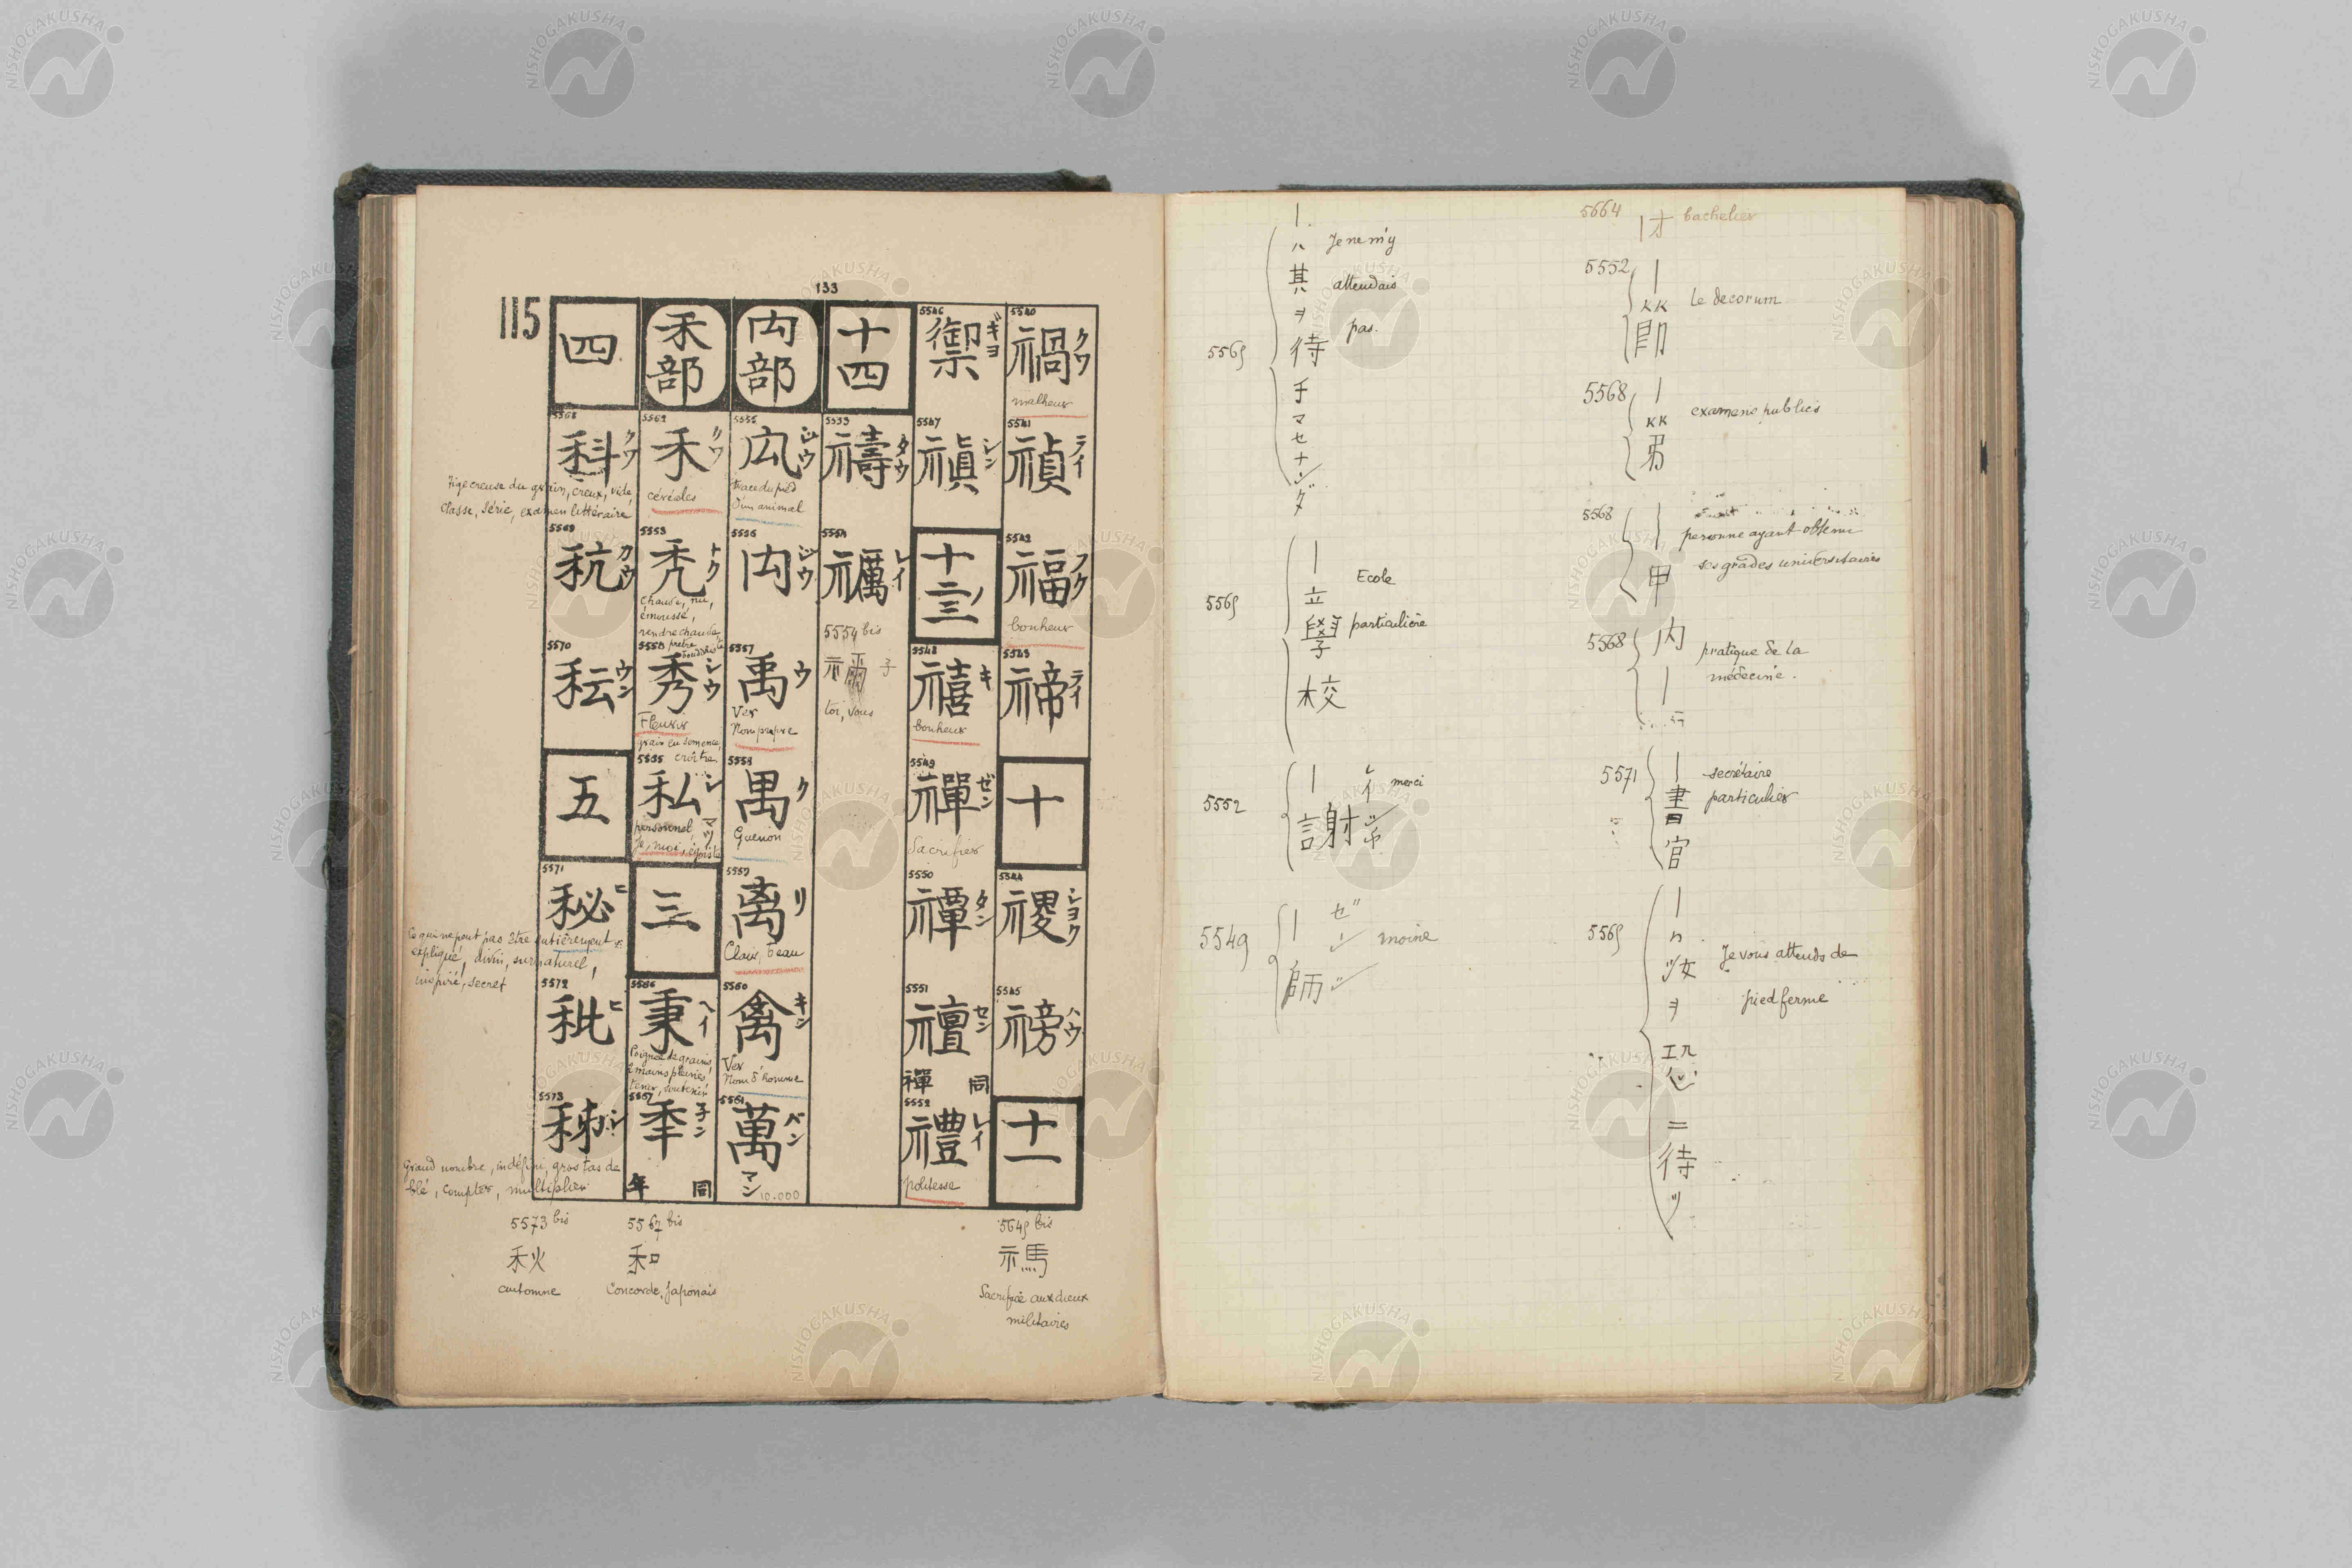 133
115
5540
禍 クワ
malheur
5541
禎 テイ
5542
福 フク
bonheur
5543
禘 テイ
十
5544
禝 シヨク
5545
禞 ハウ
十一
5649 bis
禡
Sacrifice aux dieux
militaires
5546
禦 ギヨ
5547
禛 シン
十二三ノ
5548
禧 キ
bonheur
5549
禪 ゼン
Sacrifier
5550
禫 タン
5551
禮 セン
禪 同
5552
禮 レイ
politesse
十四
5553
禱 タウ
5554
禲 レイ
5554 bis
禰 子
toi, vous
禸部
5555
厹 ジウ
trace du pied
d'un animal
5556
禸 ジウ
5557
禹 ウ
Ver
Nom propre
5558
禺 ク
Guenon
5559
离 リ
Clair, beau
5560
禽 キン
Ver
Nom d'homme
5561
萬 バン
マン 10.000
禾部
5562
禾 クワ
céréales
5553
禿 トク
chauve, nu,
émoussé,
rendre chauve,
prêtre
bouddhiste
5558
秀 シウ
Fleurir
grain en semence,
croître
5555
私 シ
personnel, マツ
Je, moi, égoïste
三
5566
秉 ヘイ
Poignée de grains,
à mains pleines,
tenir, soutenir
5567
秊 子ン
年 同
5567 bis
和
Concorde, Japonais
四
5568
科 クワ
Tige creuse du grain, creux, vide,
Classe, série, examen littéraire
5569
秔 カウ
5570
秐 ウン
五
5571
秘 ヒ
Ce qui ne peut pas être entièrement
expliqué, divin, surnaturel,
inspiré, secret
5572
秕 ヒ
5573
秭 シ
Grand nombre, indéfini, gros tas de
blé, compter, multiplier
5573 bis
秋
automne
5569
｜ハ其ヲ待チマセナンダ
Je ne m'y
attendais
pas.
5569
｜立學校
Ecole
particulière
5552
｜謝 レイ
merci
5549
｜師 ゼン
moine
5664
｜才 bachelier
5552
｜KK即
Le decorum
5568
｜KK
examens publics
5568
｜甲
personne ayant obtenu
ses grades universitaires
5568
内｜
pratique de la
médecine.
5571
｜書官
secrétaire
particulier
5569
｜ヲ待ツ
Je vous attends de
pied ferme
NISHOGAKUSHA